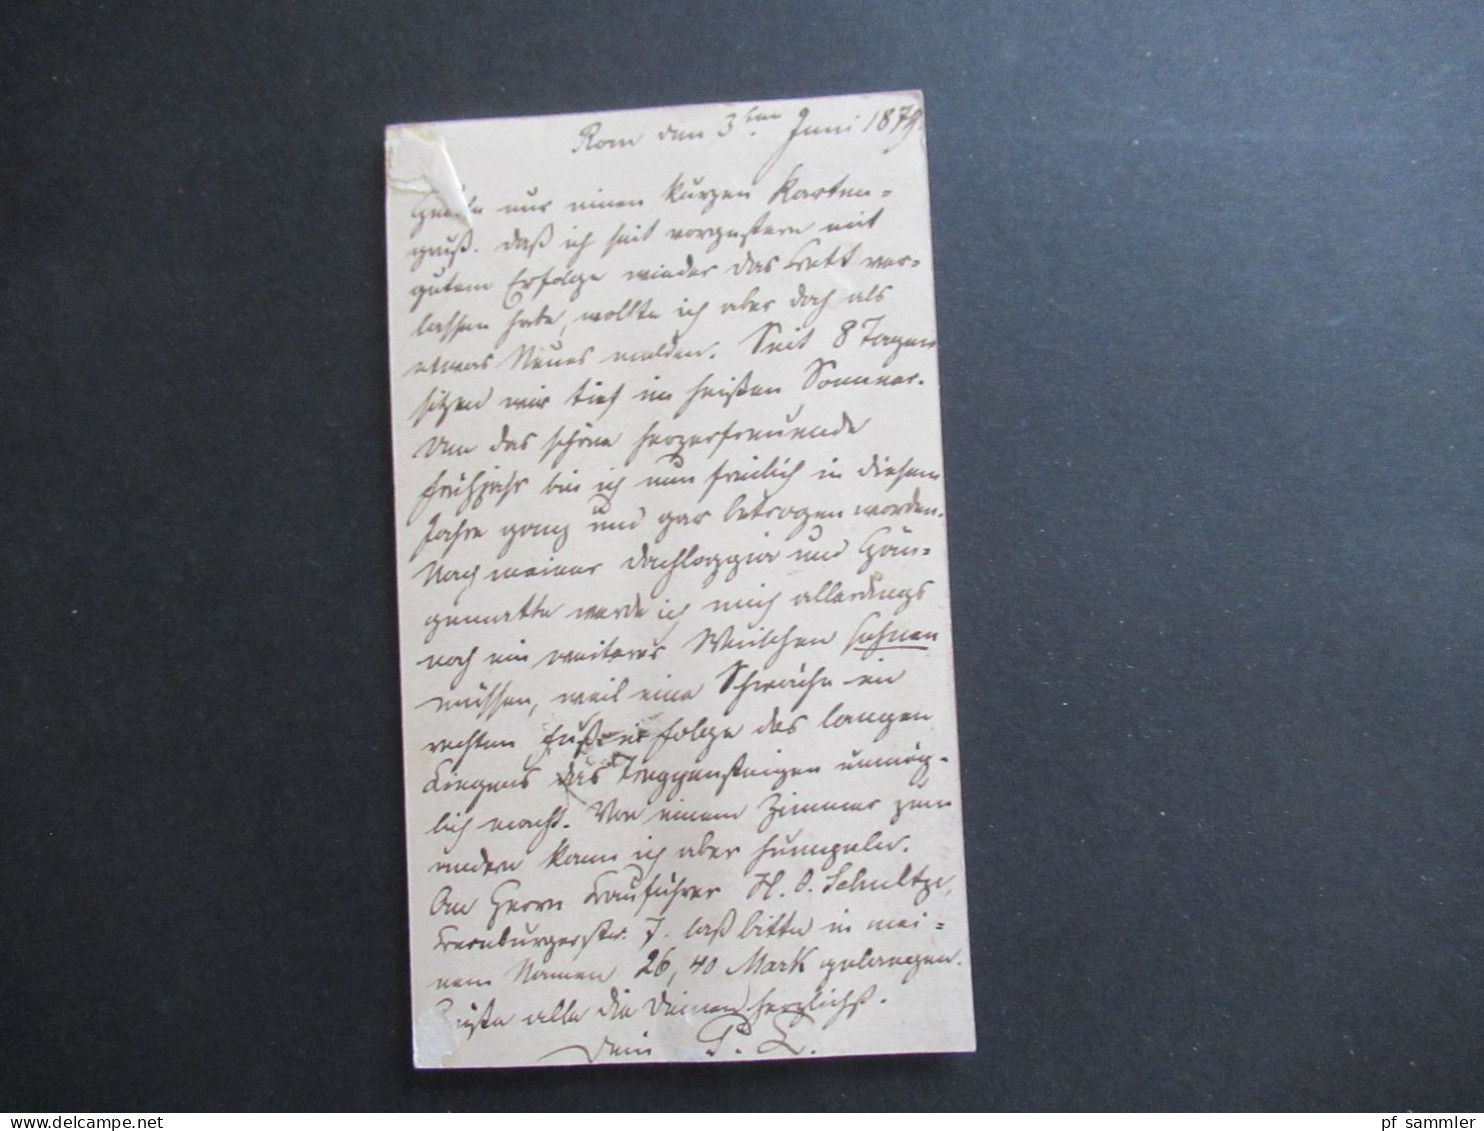 Rom den 3ten Juni 1879.
Heute nur einen kurzen Karten=
gruß. Daß ich seit vorgestern mit
gutem Erfolge wieder das Bett ver=
lassen habe, wollte ich aber doch als
etwas Neues melden. Seit 8 Tagen
sitzen wir tief im heißen Sommer.
Um das schöne herzerfreuende
Frühjahr bin ich nun freilich in diesem
Jahre ganz und gar betrogen worden.
Nach meiner Dachloggia und Hän=
gematte werde ich mich allerdings
noch ein weiteres Weilchen sehnen
müssen, weil eine Schwäche im
rechten Fuß in Folge des langen
Liegens das Treppensteigen unmög=
lich macht. Von einem Zimmer zum
andern kann ich aber humpeln.
An Herrn Bauführer H. O. Schultze,
Bernburgerstr. 7. laß bitte in mei=
nem Namen 26,40 Mark gelangen.
Grüße alle die Deinen herzlichst.
Dein P. L.
pf sammler
www.delcampe.net